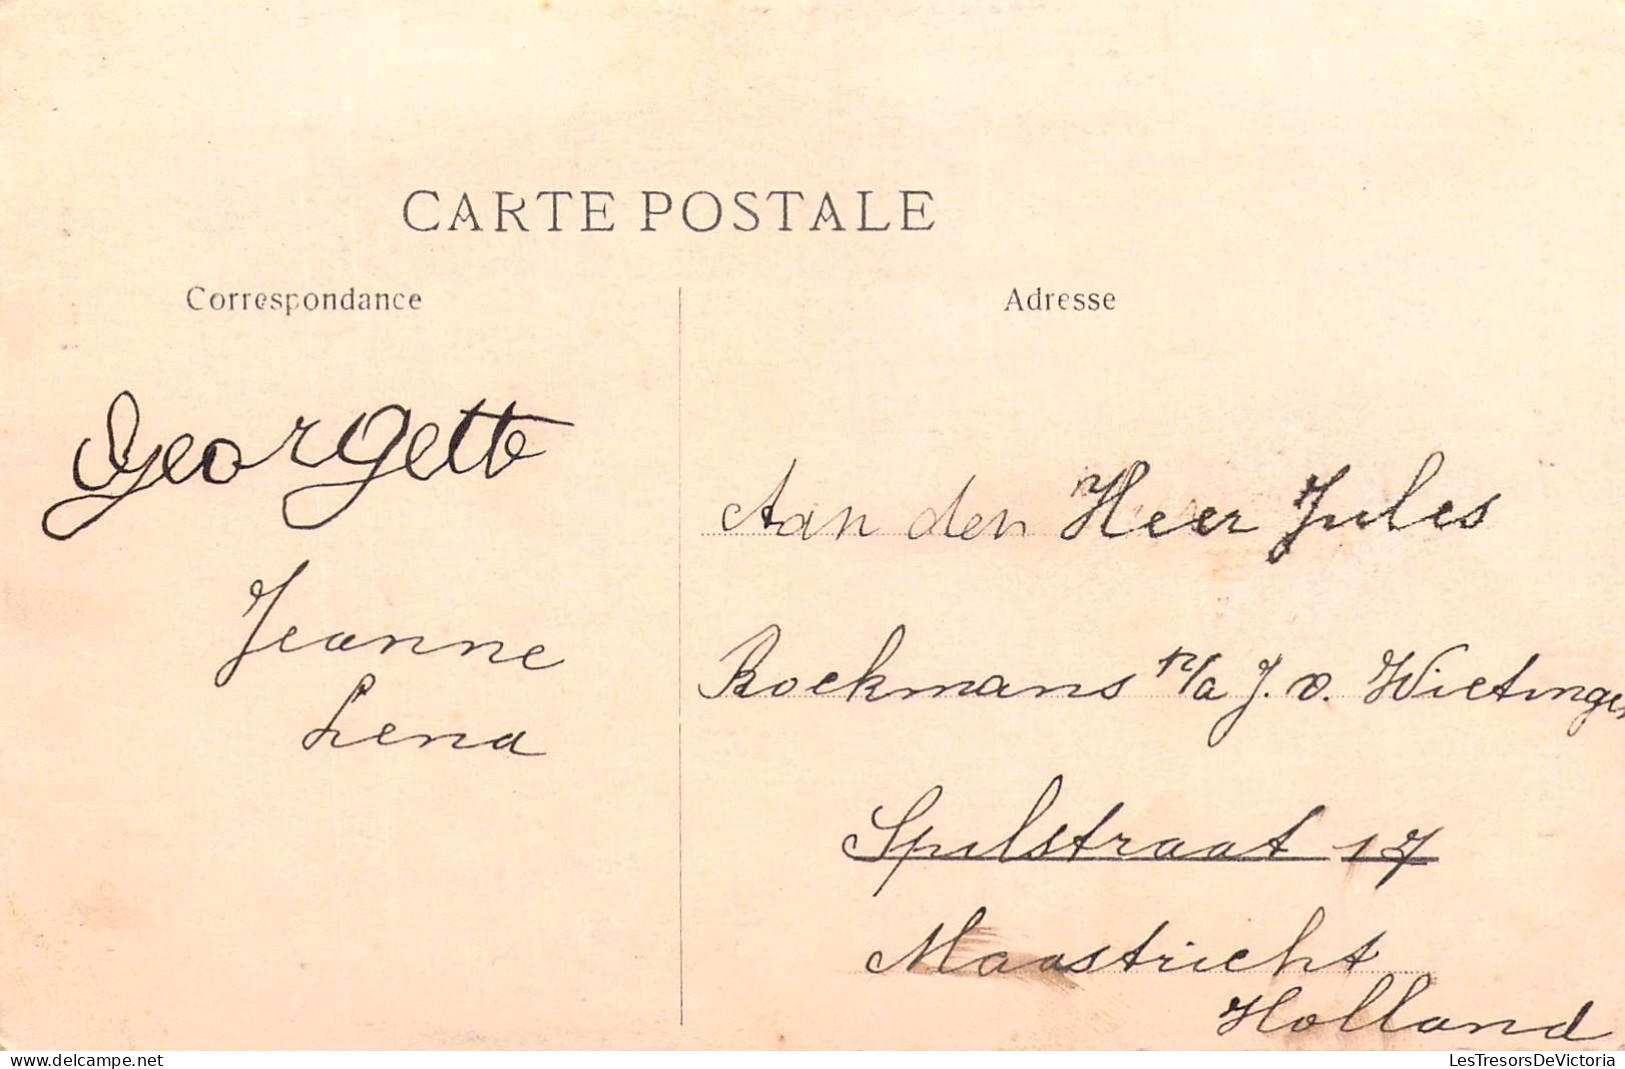 CARTE POSTALE
Correspondance
Adresse
Georgette
Jeanne
Lena
Aan den Heer Jules
Boekmans p/a J. v. Wietingen
Spilstraat 17
Maastricht
Holland
delcampe.net
LesTresorsDeVictoria